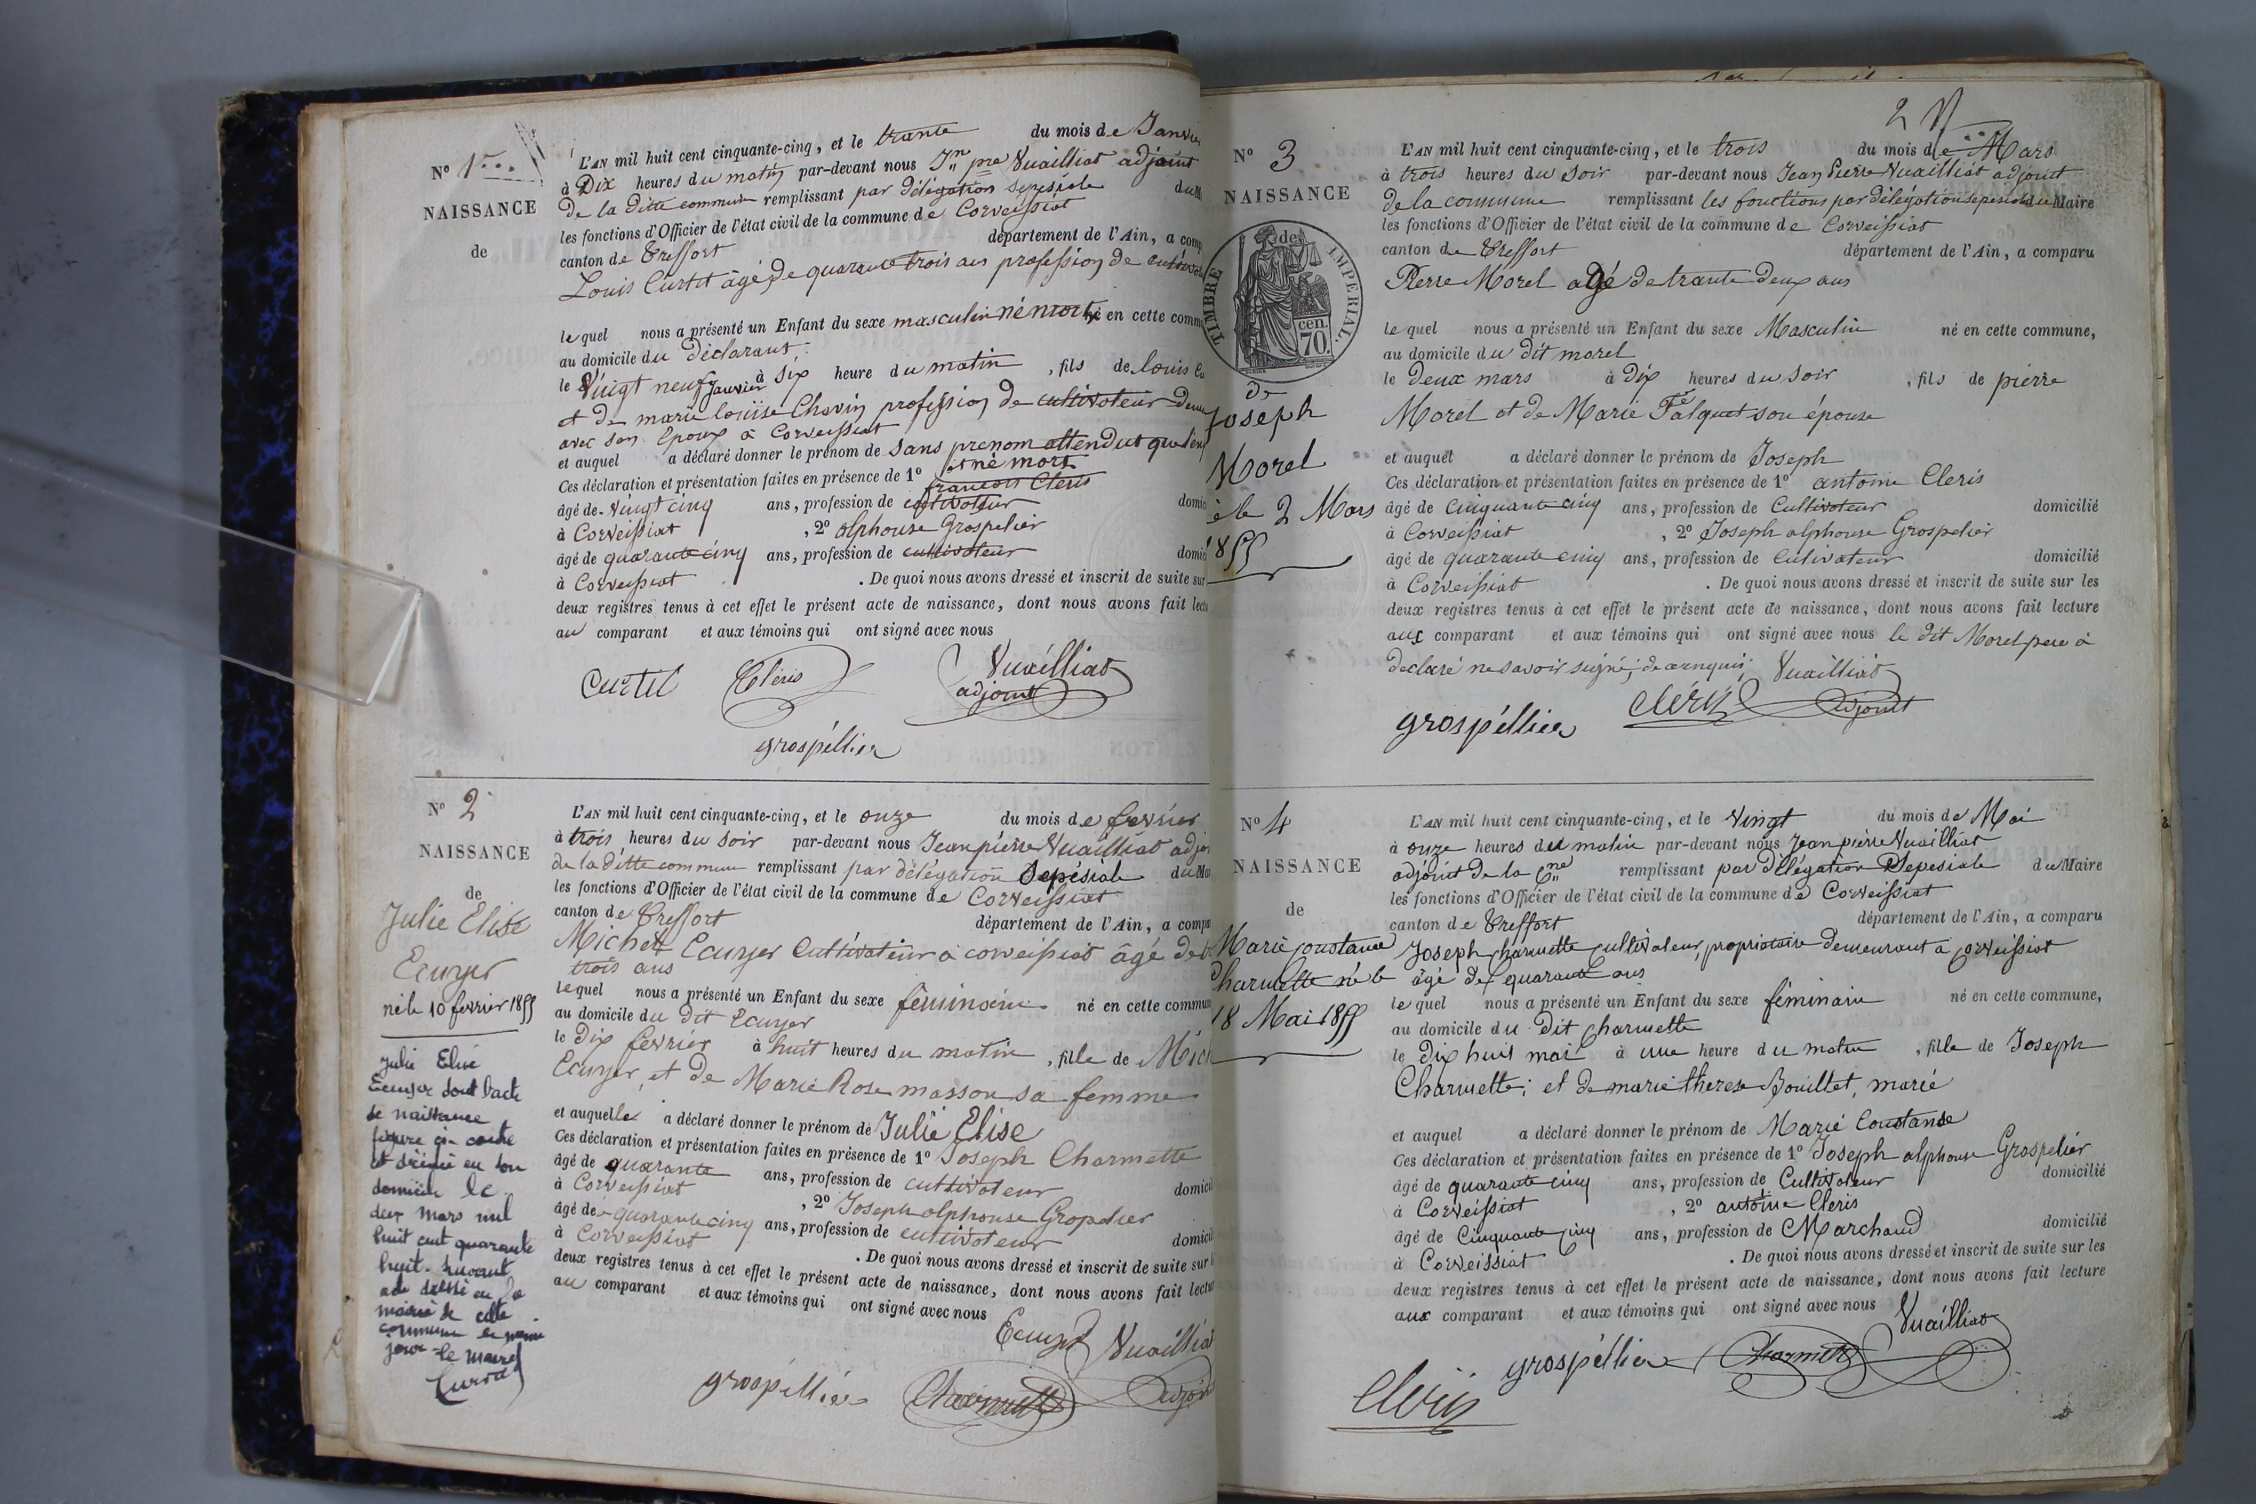 N° 1
NAISSANCE
de
L'AN mil huit cent cinquante-cinq, et le trante du mois de Janvie
à Dix heures du matin par-devant nous Jn pre Vuailliat adjoint
de la ditte commune remplissant par délégation sepésiale du M
les fonctions d'Officier de l'état civil de la commune de Corveissiat
canton de Treffort département de l'Ain, a comp
Louis Curtit âgé de quarante trois ans profession de cultivat
le quel nous a présenté un Enfant du sexe masculin né mort né en cette comm
au domicile du Déclarant
le Vingt neuf Janvier à Six heure du matin , fils de louis Cu
et de marie louise Chavin profession de cultivateur Deme
avec son Epoux à Corveissiat
et auquel a déclaré donner le prénom de Sans prenom attendut que l'en
est né mort
Ces déclaration et présentation faites en présence de 1° francois Cleris
âgé de vingt cinq ans, profession de cultivateur domici
à Corveissiat , 2° alphonse Grospelier
âgé de quarante cinq ans, profession de cultivateur domici
à Corveissiat . De quoi nous avons dressé et inscrit de suite sur
deux registres tenus à cet effet le présent acte de naissance, dont nous avons fait lectu
au comparant et aux témoins qui ont signé avec nous
Curtit Cléris Vuailliat
adjoint
grospéllier
N° 2
NAISSANCE
de
Julie Elise
Ecuyer
né le 10 fevrier 1855
Julie Elise
Ecuyer dont l'acte
de naissance
figure ci-contre
est décédé en son
domicile le
deux mars mil
huit cent quarante
huit. suivant
acte dressé en la
mairie de cette
commune le même
jour - le maire
L'AN mil huit cent cinquante-cinq, et le onze du mois de fevrier
à trois heures du soir par-devant nous Jean pierre Vuailliat adjoi
de la ditte commune remplissant par délégation Sepésiale du Mai
les fonctions d'Officier de l'état civil de la commune de Corveissiat
canton de Treffort département de l'Ain, a compa
Michel Ecuyer Cultivateur à corveissiat âgé de
trois ans
le quel nous a présenté un Enfant du sexe féminin né en cette commun
au domicile du dit Ecuyer
le Dix fevrier à huit heures du matin , fille de Mich
Ecuyer et de Marie Rose masson sa femme
et auquelle a déclaré donner le prénom de Julie Elise
Ces déclaration et présentation faites en présence de 1° Joseph Charmette
âgé de quarante ans, profession de cultivateur domicil
à Corveissiat , 2° Joseph alphonse Gropelier
âgé de quarante cinq ans, profession de cultivateur domicil
à Corveissiat . De quoi nous avons dressé et inscrit de suite sur
deux registres tenus à cet effet le présent acte de naissance, dont nous avons fait lectur
au comparant et aux témoins qui ont signé avec nous
Ecuyer Vuailliat
grospéllier Charmette adjoint
2
N° 3
NAISSANCE
de
TIMBRE IMPERIAL.
70 cen.
De
Joseph
Morel
né le 2 Mars
1855
L'AN mil huit cent cinquante-cinq, et le trois du mois de Mars
à trois heures du Soir par-devant nous Jean Pierre Vuailliat adjoint
de la commune remplissant les fonctions par délégation sepesiale du Maire
les fonctions d'Officier de l'état civil de la commune de Corveissiat
canton de Treffort département de l'Ain, a comparu
Pierre Morel agé de trante deux ans
le quel nous a présenté un Enfant du sexe Masculin né en cette commune,
au domicile du dit morel
le deux mars à dix heures du soir , fils de pierre
Morel et de Marie Falquet son épouse
et auquel a déclaré donner le prénom de Joseph
Ces déclaration et présentation faites en présence de 1° antoine Cleris
âgé de cinquante cinq ans, profession de Cultivateur domicilié
à Corveissiat , 2° Joseph alphonse Grospelier
âgé de quarante cinq ans, profession de Cultivateur domicilié
à Corveissiat . De quoi nous avons dressé et inscrit de suite sur les
deux registres tenus à cet effet le présent acte de naissance, dont nous avons fait lecture
aux comparant et aux témoins qui ont signé avec nous le dit Morel pere à
declaré ne savoir signé, de ce enquis; Vuailliat
grospéllier Cléris adjoint
N° 4
NAISSANCE
de
Marie Constance
Charmette né le
18 Mai 1855
L'AN mil huit cent cinquante-cinq, et le Vingt du mois de Mai
à onze heures du matin par-devant nous Jean pierre Vuailliat
adjoint de la Cne remplissant par délégation Sepesiale du Maire
les fonctions d'Officier de l'état civil de la commune de Corveissiat
canton de Treffort département de l'Ain, a comparu
Joseph charmette cultivateur, propriétaire demeurant à corveissiat
âgé de quarante ans
le quel nous a présenté un Enfant du sexe féminin né en cette commune,
au domicile du dit charmette
le dix huit mai à une heure du matin , fille de Joseph
Charmette; et de marie therese Bouillet, marié
et auquel a déclaré donner le prénom de Marie Constande
Ces déclaration et présentation faites en présence de 1° Joseph alphonse Grospelier
âgé de quarante cinq ans, profession de Cultivateur domicilié
à Corveissiat , 2° antoine Cleris
âgé de Cinquante Cinq ans, profession de Marchand domicilié
à Corveissiat . De quoi nous avons dressé et inscrit de suite sur les
deux registres tenus à cet effet le présent acte de naissance, dont nous avons fait lecture
aux comparant et aux témoins qui ont signé avec nous Vuailliat
grospéllier Charmette
Cléris